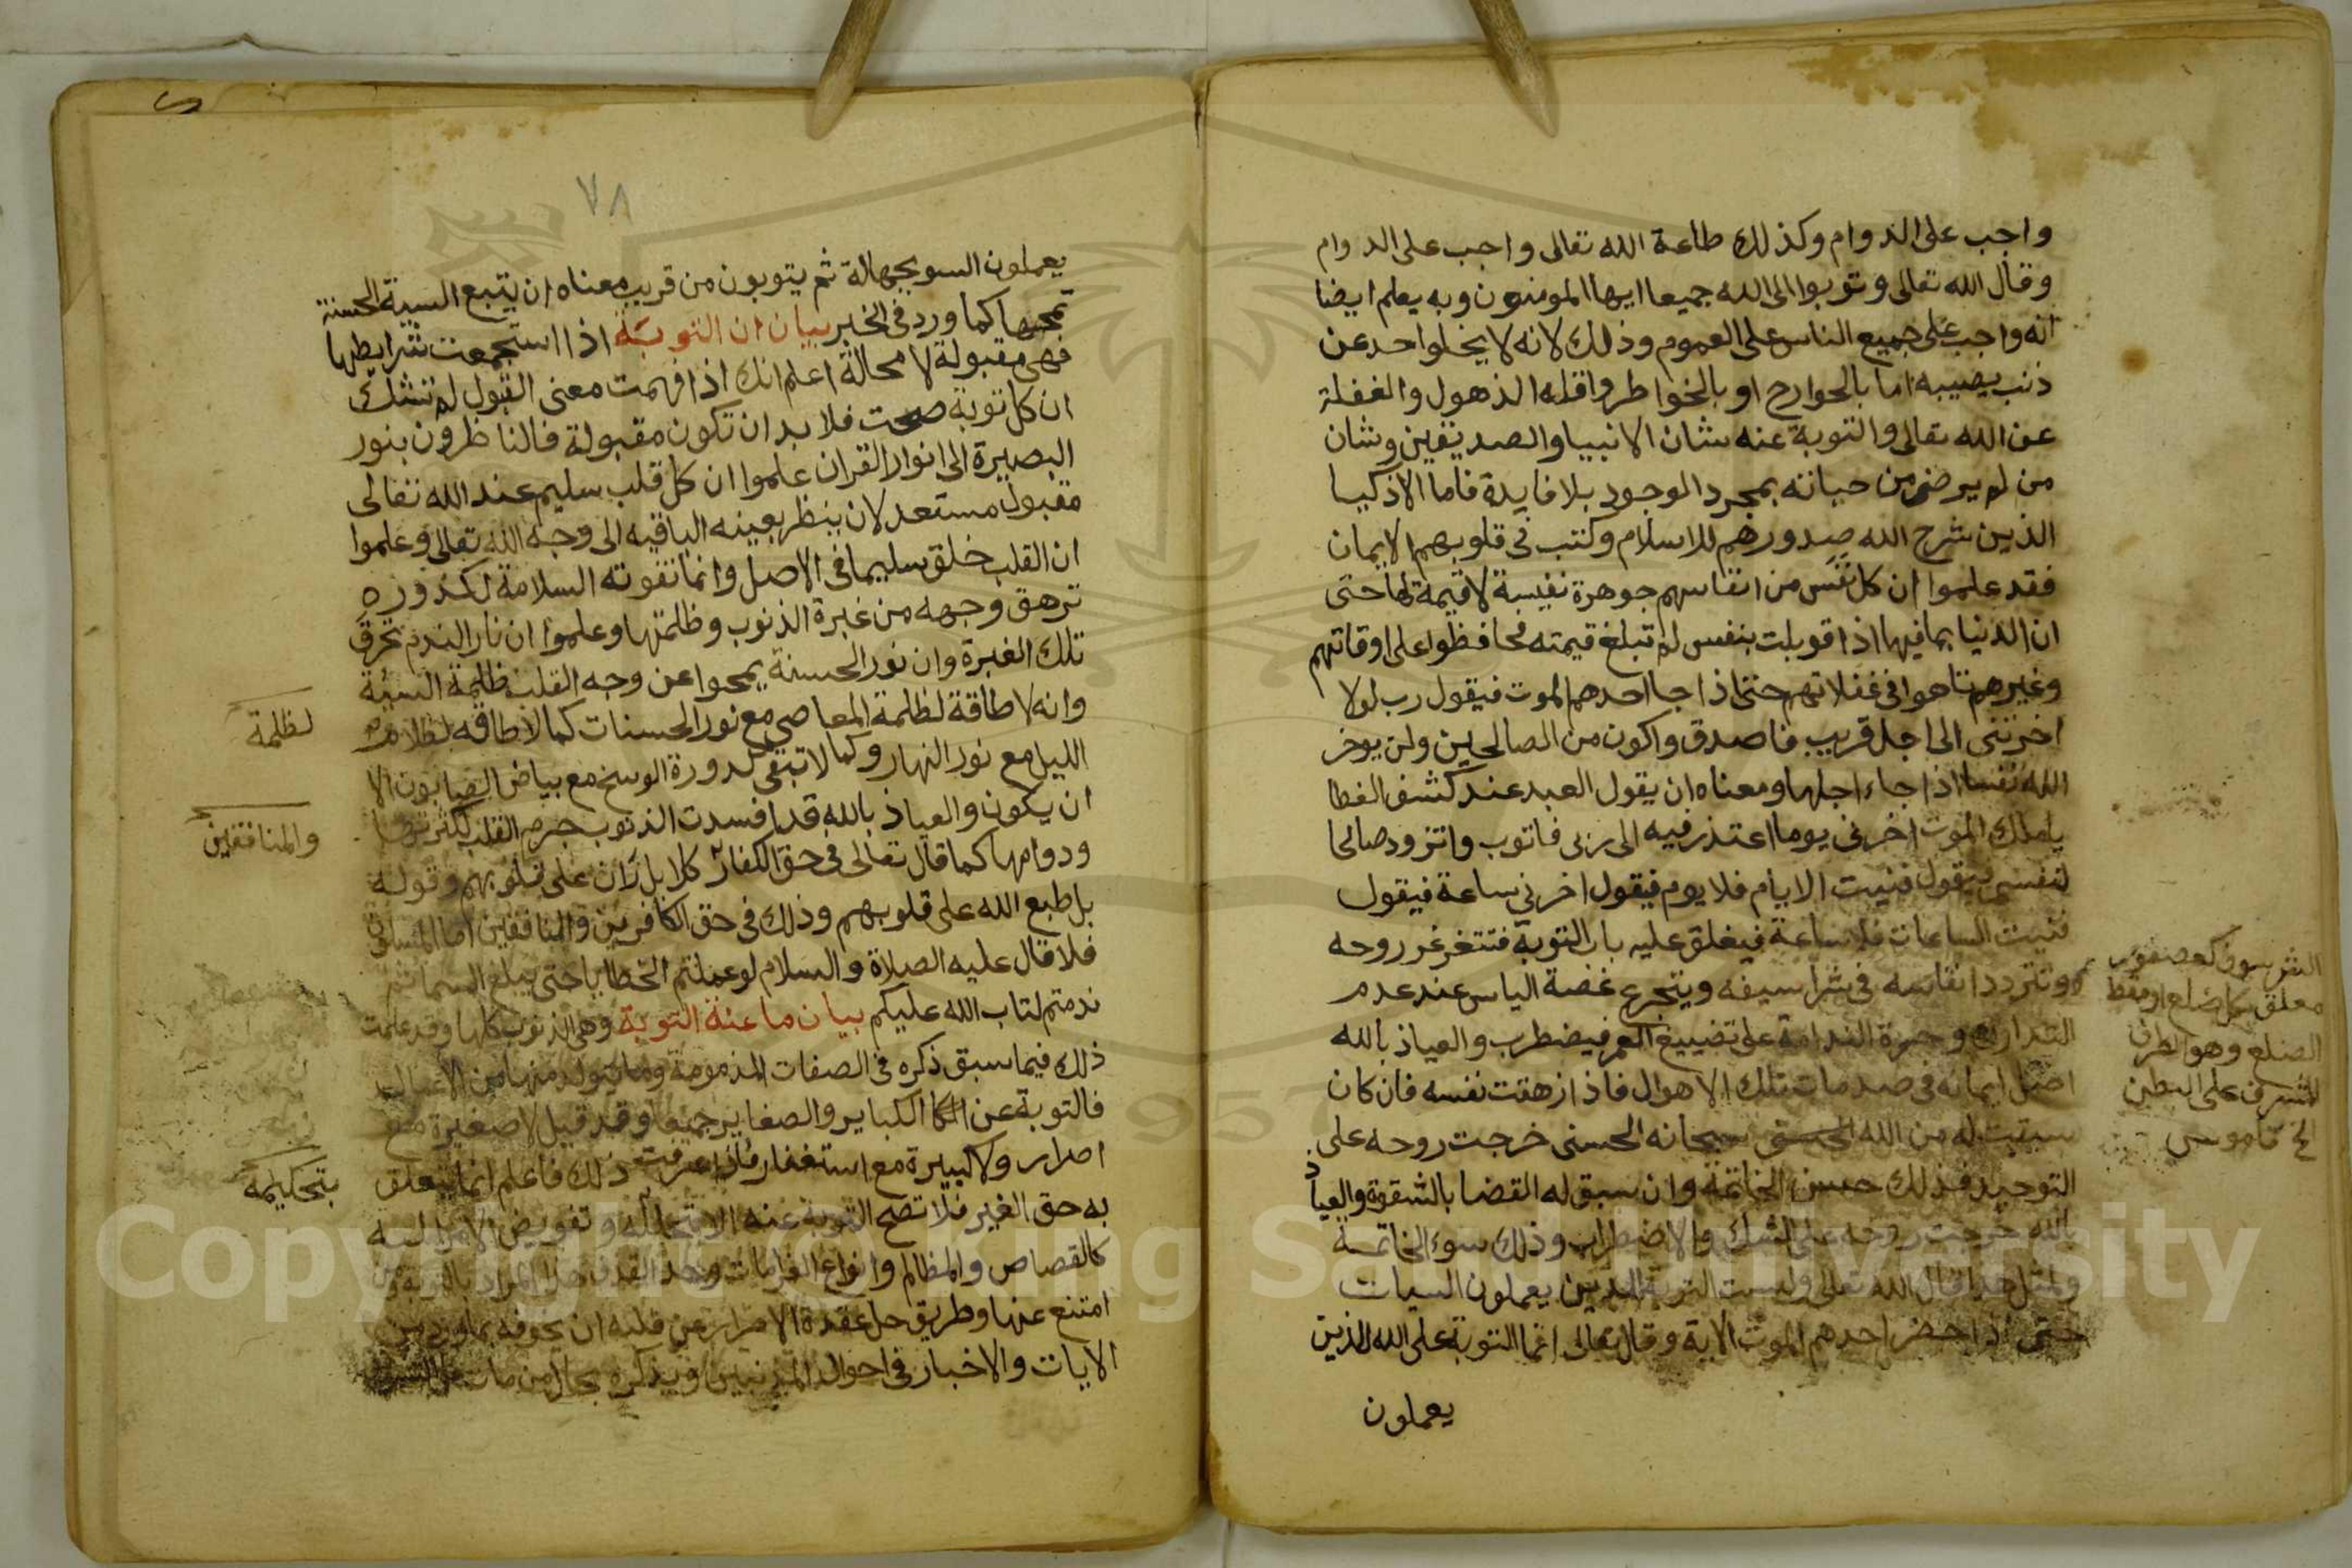 واجب على الدوام وكذلك طاعة الله تعالى واجب على الدوام
وقال الله تعالى وتوبوا الى الله جميعا ايها المومنون وبه يعلم ايضا
انه واجب على جميع الناس على العموم وذلك لانه لا يخلوا احد عن
ذنب يصيبه اما بالجوارح او بالخواطر واقله الذهول والغفلة
عن الله تعالى والتوبة عنه شان الانبيا والصديقين وشان
من لم يرض من حياته بمجرد الوجود بلا فايدة فاما الاذكيا
الذين شرح الله صدورهم للاسلام وكتب في قلوبهم الايمان
فقد علموا ان كل نفس من انفاسهم جوهرة نفيسة لا قيمة لها حتى
ان الدنيا بما فيها اذا قوبلت بنفس لم تبلغ قيمته فحافظوا على اوقاتهم
وغيرهم تاهوا في غفلاتهم حتى اذا جا احدهم الموت فيقول رب لولا
اخرتني الى اجل قريب فاصدق واكون من الصالحين ولن يوخر
الله نفسا اذا جاء اجلها ومعناه ان يقول العبد عند كشف الغطا
يا ملك الموت اخرني يوما اعتذر فيه الى ربى فاتوب واتزود صالحا
لنفسي فيقول فنيت الايام فلا يوم فيقول اخرني ساعة فيقول
فنيت الساعات فلا ساعة فيغلق عليه باب التوبة فتتغرغر روحه
وتتردد انفاسه في شراسيفه ويتجرع غصة الياس عند عدم
التدارك وحسرة الندامة على تضييع العمر فيضطرب والعياذ بالله
اصل ايمانه في صدمات تلك الاهوال فاذا زهقت نفسه فان كان
سبقت له من الله سبحانه الحسنى خرجت روحه على
التوحيد فذلك حسن الخاتمة وان سبق له القضا بالشقوة والعياذ
بالله خرجت روحه على الشك والاضطراب وذلك سوء الخاتمة
ولمثل هذا قال الله تعالى وليست التوبة للذين يعملون السيات
حتى اذا حضر احدهم الموت الاية وقال تعالى انما التوبة على الله للذين
يعملون
الشرسوف كعصفور
معلق بكل ضلع او مقط
الضلع وهو الطرف
المشرف على البطن
الخ قاموس
٧٨
يعملون السو بجهالة ثم يتوبون من قريب معناه ان يتبع السيية الحسنة
تمحها كما ورد في الخبر بيان ان التوبة اذا استجمعت شرايطها
فهي مقبولة لا محالة اعلم انك اذا فهمت معنى القبول لم تشك
ان كل توبة صحت فلا بد ان تكون مقبولة فالناظرون بنور
البصيرة الى انوار القران علموا ان كل قلب سليم عند الله تعالى
مقبول مستعد لان ينظر بعينه الباقيه الى وجه الله تعالى وعلموا
ان القلب خلق سليما في الاصل وانما تفوته السلامة لكدورة
ترهق وجهه من غبرة الذنوب وظلمتها وعلموا ان نار الندم تحرق
تلك الغبرة وان نور الحسنة يمحوا عن وجه القلب ظلمة السيئة
وانه لا طاقة لظلمة المعاصي مع نور الحسنات كما لا طاقه لظلام
الليل مع نور النهار وكما لا تبقى كدورة الوسخ مع بياض الصابون الا
ان يكون والعياذ بالله قد افسدت الذنوب جرم القلب لكثرتها
ودوامها كما قال تعالى في حق الكفار كلا بل ران على قلوبهم وقوله
بل طبع الله على قلوبهم وذلك في حق الكافرين والمنافقين اما المسلمون
فلا قال عليه الصلاة والسلام لو عملتم الخطايا حتى يبلغ السما ثم
ندمتم لتاب الله عليكم بيان ما عنه التوبة وهي الذنوب كلها وقد علمت
ذلك فيما سبق ذكره في الصفات المذمومة وما يتولد منها من الاعمال
فالتوبة عن الكباير والصغاير جميعا وقد قيل لا صغيرة مع
اصرار ولا كبيرة مع استغفار فاذا عرفت ذلك فاعلم انما يتعلق
به حق الغير فلا تصح التوبة عنه الا وتفويض الامر اليه
كالقصاص والمظالم وانواع الغرامات وحد القذف
امتنع عنها وطريق حل عقدة الاصرار عن قلبه ان يخوفه بما ورد من
الايات والاخبار في احوال المذنبين ويذكره بحال من مات
لظلمة
والمنافقين
بتحكيمه
Copyright © King Saud University
1957